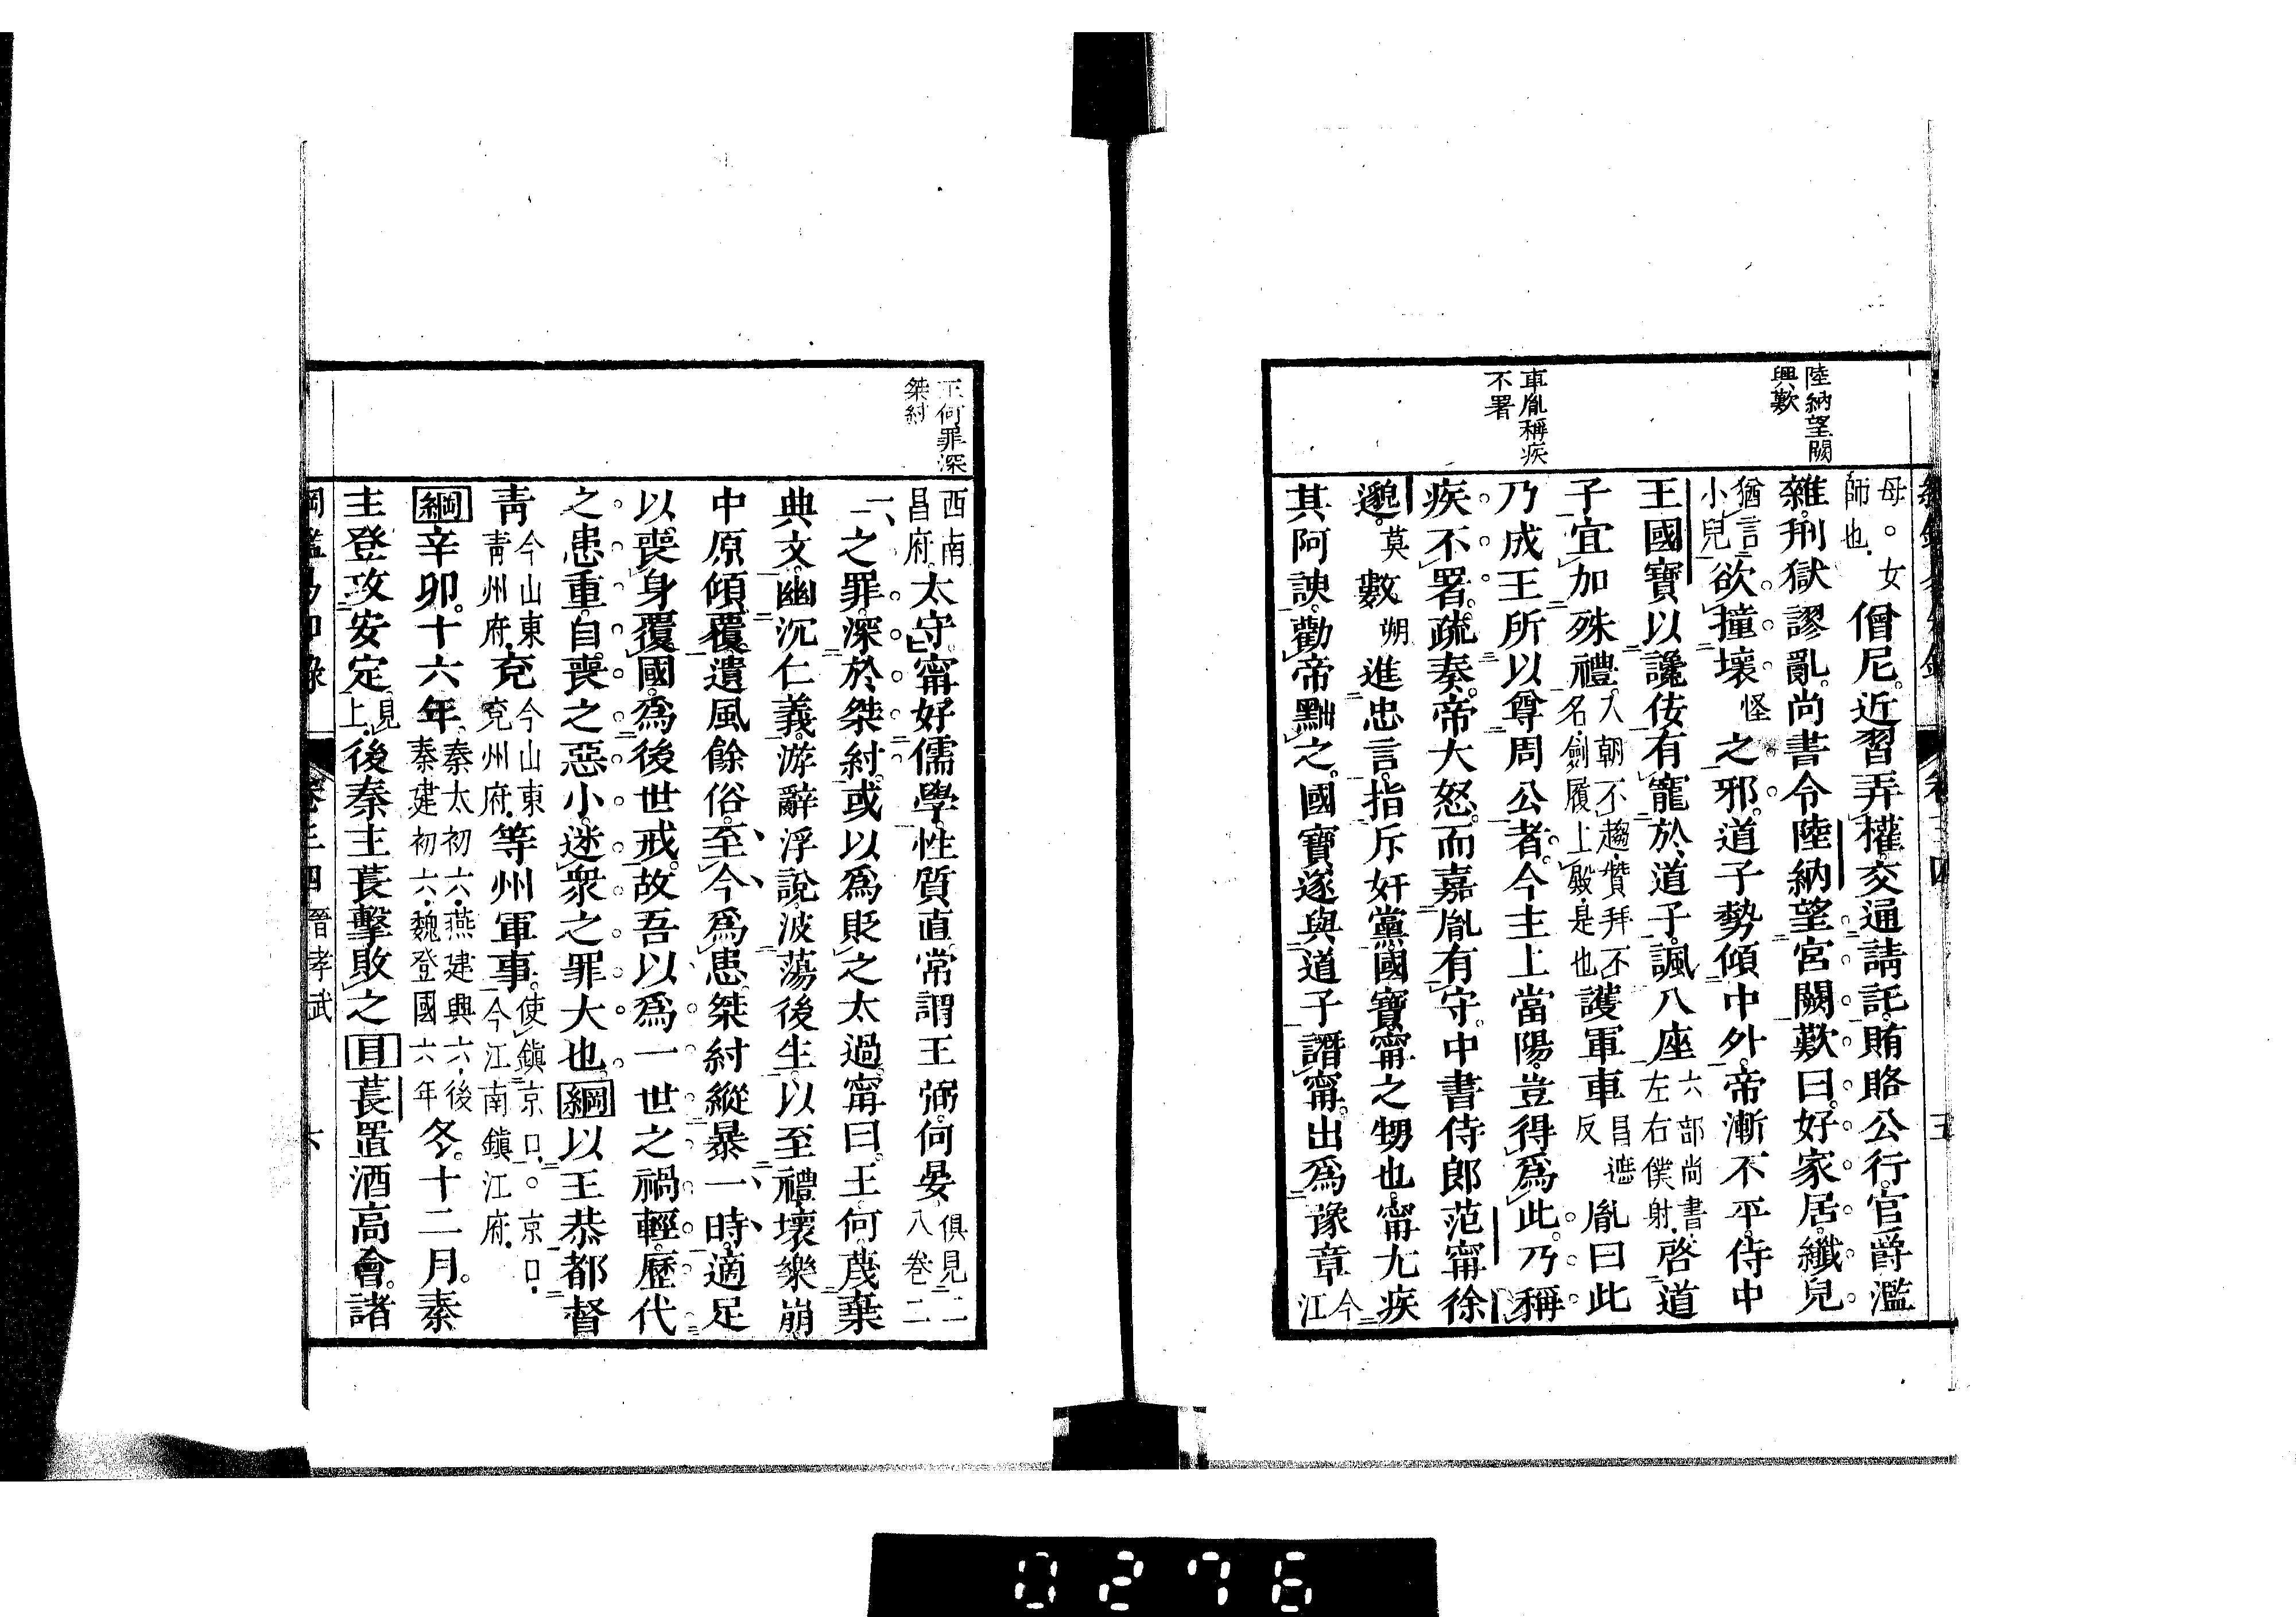 陸納望闕
興歎
車胤稱疾
不署
母。女師也。僧尼。近習弄權。交通請託。賄賂公行。官爵濫
雜。刑獄謬亂。尚書令陸納望宮闕歎曰。好家居。纖兒
猶言小兒欲撞壞怪之邪。道子勢傾中外。帝漸不平。侍中
王國寶以讒佞有寵於道子。諷八座六部尚書。左右僕射。啓道
子宜加殊禮。入朝不趨。贊拜不名。劍履上殿。是也護軍車昌遮反胤曰此
乃成王所以尊周公者。今主上當陽。豈得爲此。乃稱
疾不署。疏奏。帝大怒。而嘉胤有守。中書侍郎范甯徐
邈。莫數朔進忠言。指斥奸黨。國寶甯之甥也。甯尤疾
其阿諛。勸帝黜之。國寶遂與道子譖甯。出爲豫章今江
王何罪深
桀紂
西南昌府。太守。甯好儒學。性質直。常謂王弼。何晏、俱見二八卷二
一、之罪。深於桀紂。或以爲貶之太過。甯曰。王何。蔑棄
典文。幽沉仁義。游辭浮說。波蕩後生。以至禮壞樂崩
中原傾覆。遺風餘俗。至今爲患。桀紂縱暴一時。適足
以喪身覆國。爲後世戒。故吾以爲一世之禍輕。歷代
之患重。自喪之惡小。迷衆之罪大也。綱以王恭都督
青今山東青州府。兗今山東兗州府。等州軍事。使鎭京口。京口。今江南鎭江府。
綱辛卯。十六年。秦太初六。燕建興六。後秦建初六。魏登國六年冬。十二月。秦
主登攻安定。見上。後秦主萇擊敗之目萇置酒高會。諸
卷三四 晉孝武 六